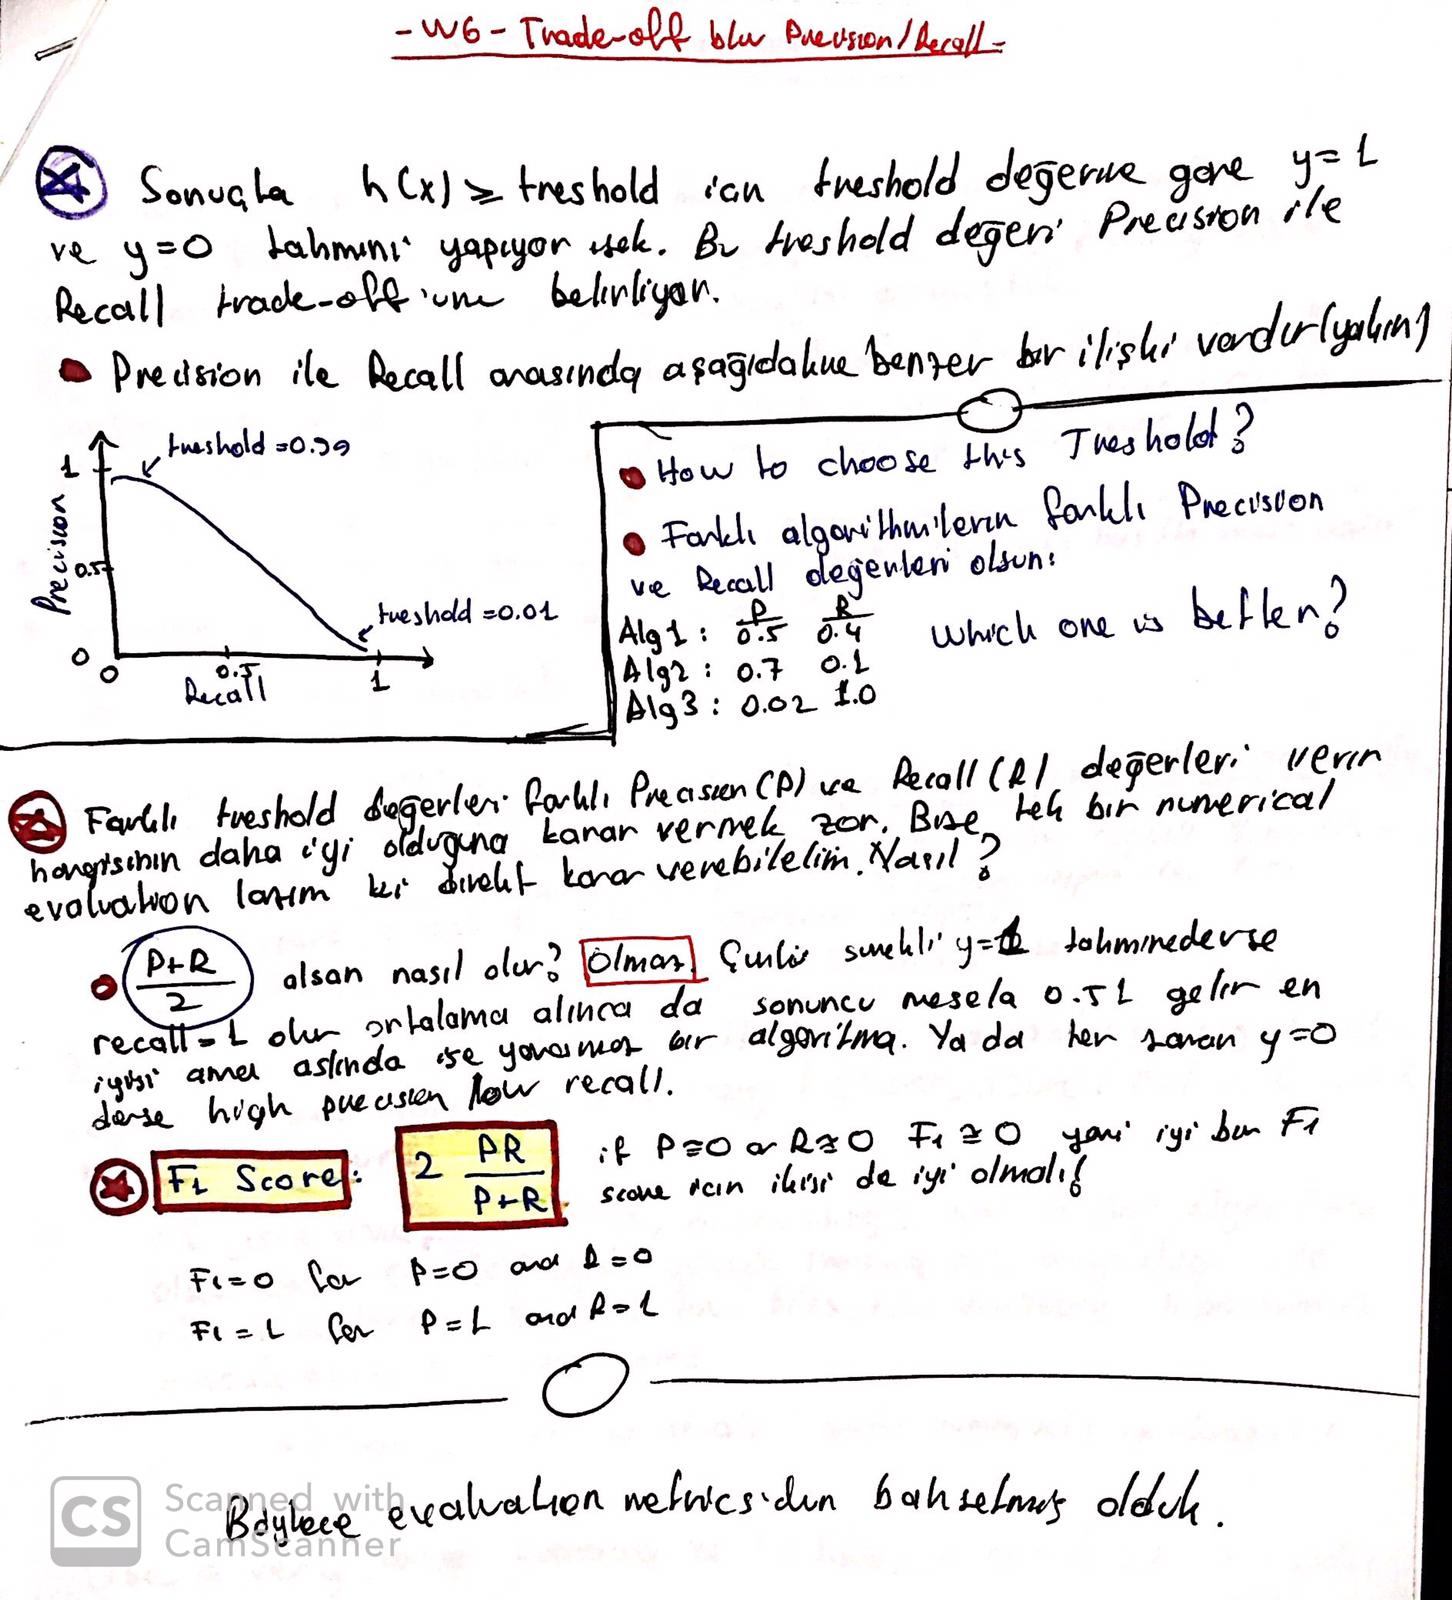 - W6 - Trade-off b/w Precision/Recall -
Sonuçta h(x) ≥ treshold için treshold değerine göre y=1
ve y=0 tahmini yapıyor isek. Bu treshold değeri Precision ile
Recall trade-off'unu belirliyor.
Precision ile Recall arasında aşağıdakine benzer bir ilişki vardır(yakın)
treshold =0.99
1
Precision
0.5
treshold =0.01
0
0
0.5
1
Recall
How to choose this Treshold?
Farklı algorithmilerin farklı Precision
ve Recall değerleri olsun:
P R
Alg1 : 0.5 0.4 Which one is better?
Alg2 : 0.7 0.1
Alg3 : 0.02 1.0
Farklı treshold değerleri farklı Precision (P) ve Recall (R) değerleri verir
hangisinin daha iyi olduğuna karar vermek zor. Bize tek bir numerical
evaluation lazım ki direkt karar verebilelim. Nasıl?
P+R
2
alsan nasıl olur? Olmaz! Çünkü sürekli y=1 tahminederse
recall=1 olur ortalama alınca da sonuncu mesela 0.51 gelir en
iyisi ama aslında işe yaramaz bir algoritma. Ya da her zaman y=0
derse high precision low recall.
F1 Score: 2 PR
P+R
if P≅0 or R≅0 F1 ≅ 0 yani iyi bir F1
score için ikisi de iyi olmalı!
F1=0 for P=0 and R=0
F1=1 for P=1 and R=1
Böylece evaluation metrics'den bahsetmiş olduk.
CS Scanned with
CamScanner